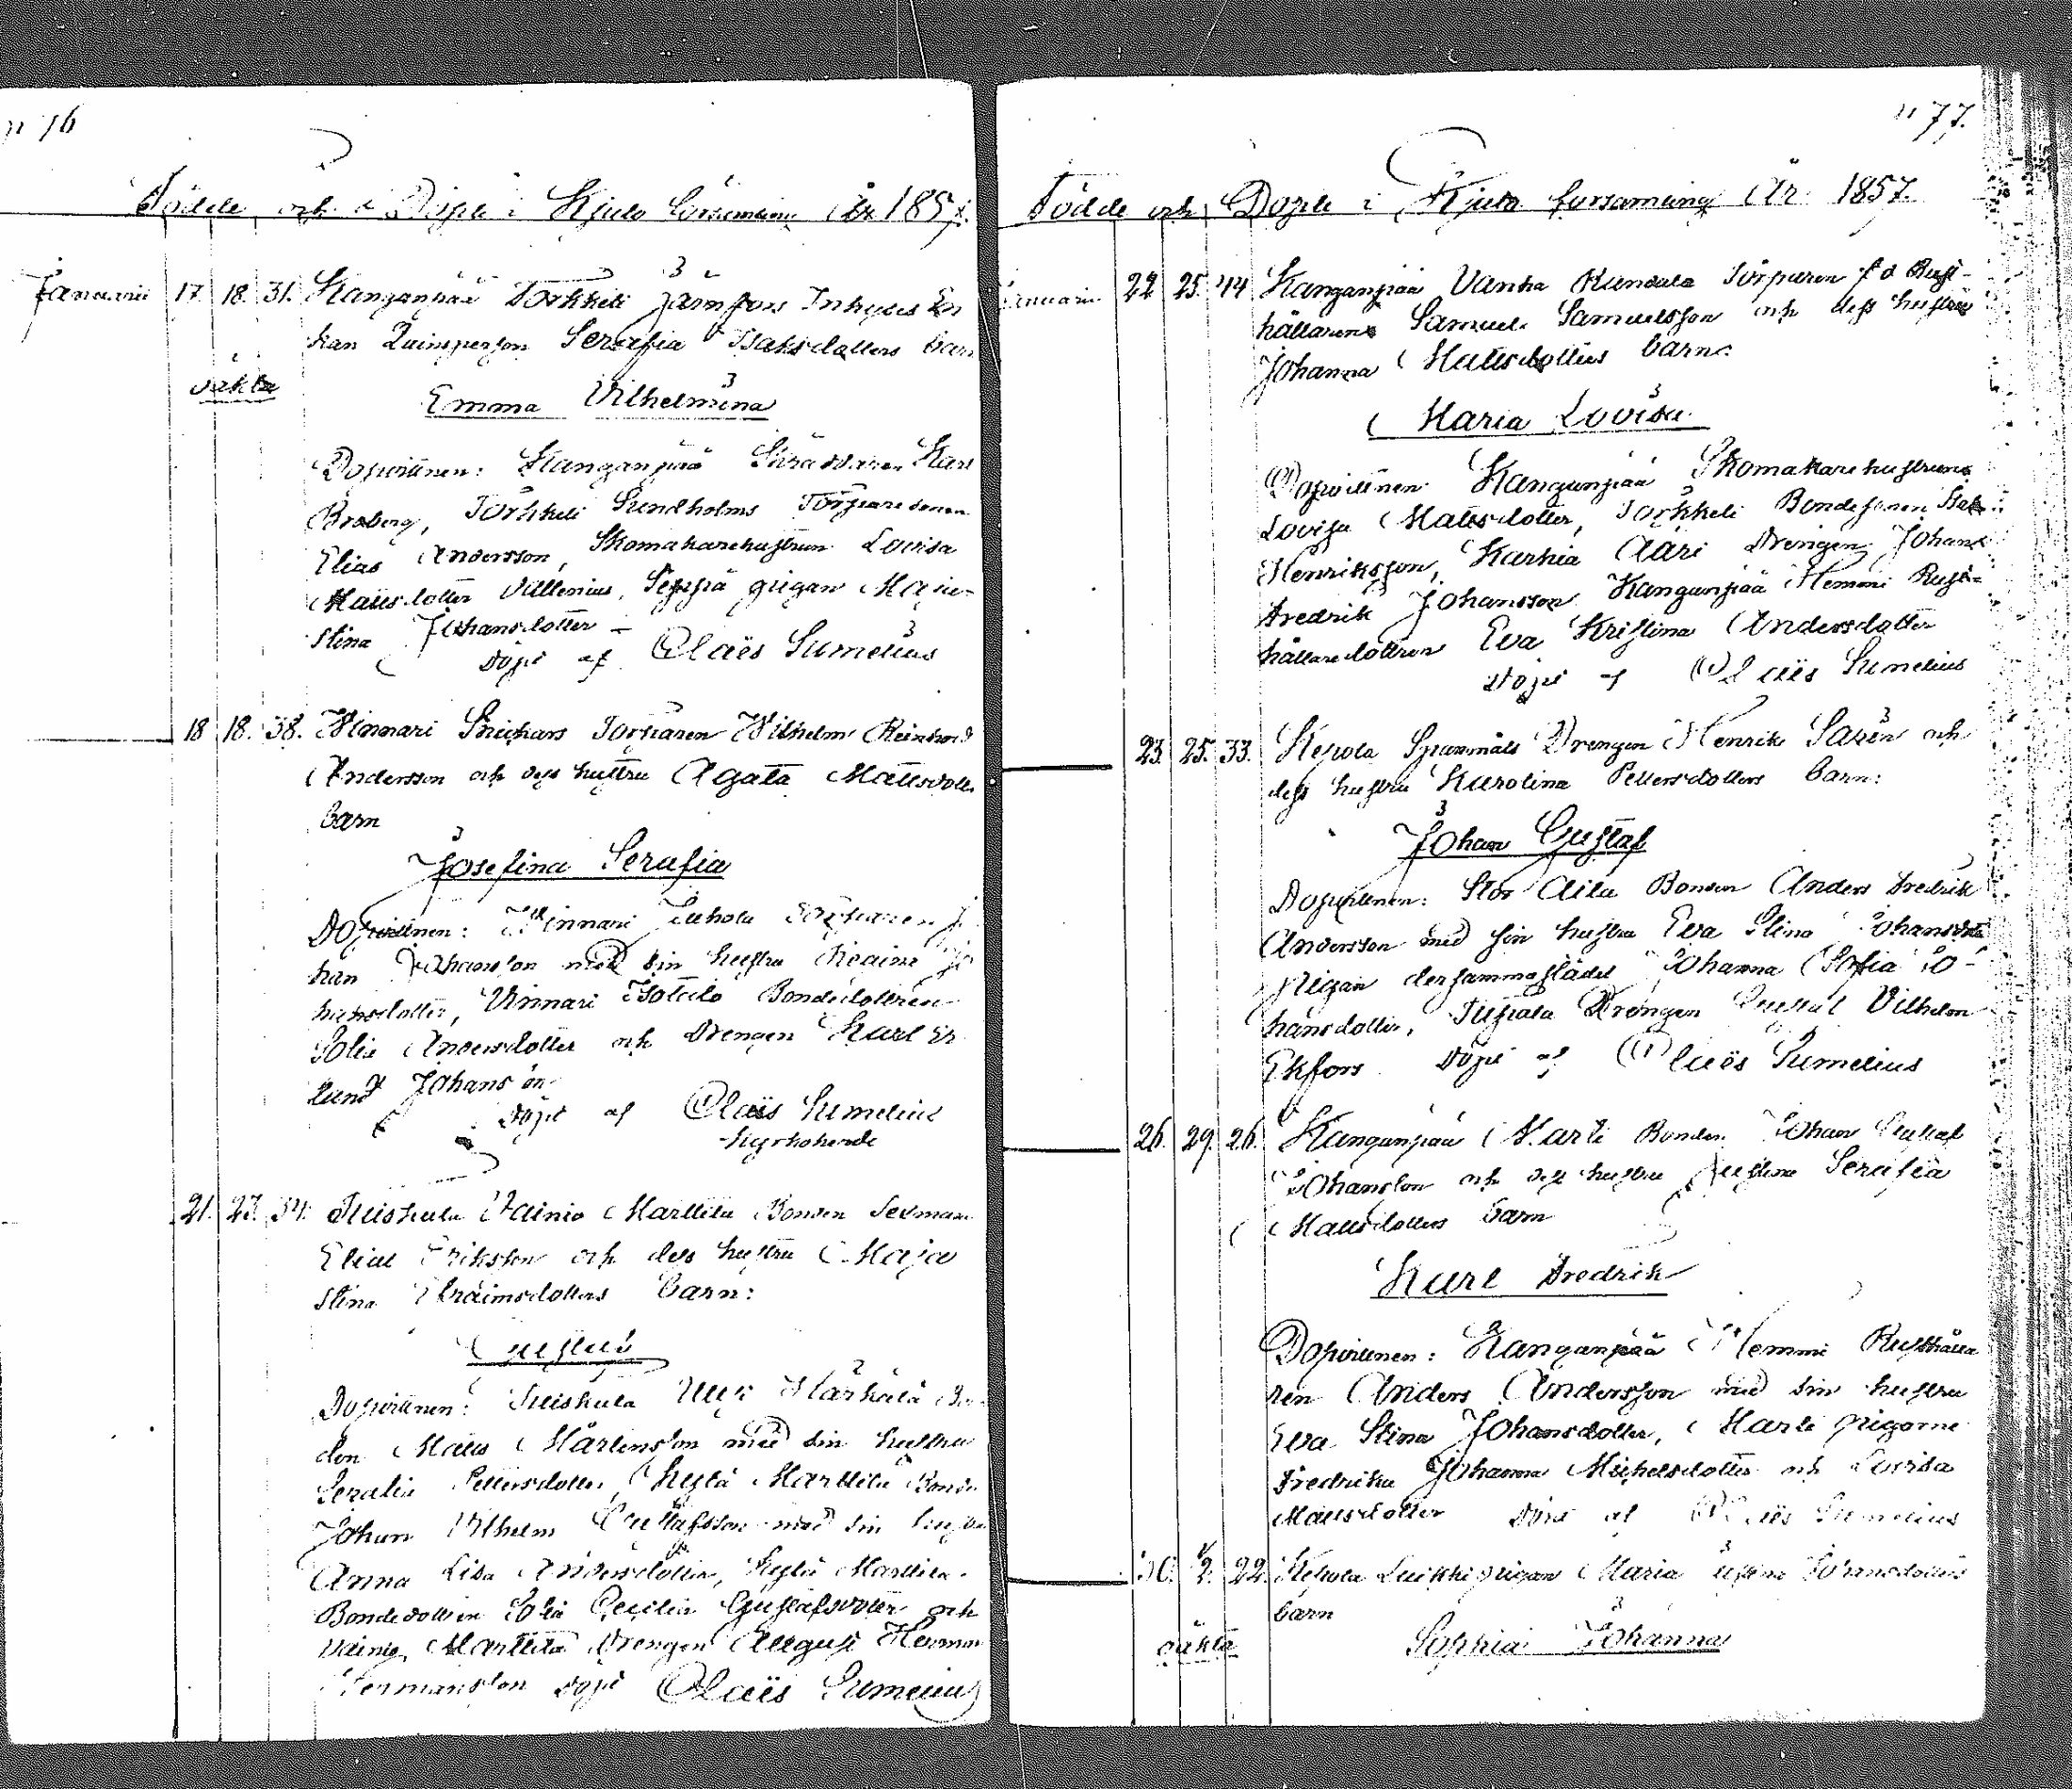 76
Födde och Döpte i Kjulo församling År 1857.
Januarii 17. 18. 31. Kanganpää Torkkeli Järnfors Inhyses En
kan Qvinsperson Serafia Isaksdotters barn
oäkta
Emma Vilhelmina
Dopvittnen: Kanganpää Skräddaren Karl
Broberg, Torkkeli Sundholms Torparesonen
Elias Andersson, Skomakarehustrun Lovisa
Mattsdotter Vallenius, Seppä pigan Maja
Stina Johansdotter
Döpt af Claës Sumelius
18. 18. 38. Vinnari Snickars Torparen Wilhelm Reinhold
Andersson och dess hustru Agata Mattsdotters
barn
Josefina Serafia
Dopvittnen: Vinnari Torparen Jo
han Johansson med sin hustru Jo
hansdotter, Vinnari Isotalo Bondedottren
Sofia Andersdotter och Drengen Karl Er
lund Johansson
Döpt af Claës Sumelius
Kyrkoherde
21. 23. 34. Tuiskula Vainio Marttila Bonden Sexman
Elias Eriksson och dess hustru Maja
Stina Efraimsdotters barn:
Gustus
Dopvittnen: Tuiskula Uusi Härkälä Bon
den Matts Mårtensson med sin hustru
Serafia Pettersdotter, Kylä Marttila Bonden
Johan Vilhelm Gustafsson med sin hustru
Anna Lisa Andersdotter, Kylä Marttila
Bondedottren Sofia Cecilia Gustafsdotter och
Vainio Marttila Drengen August Herman
Hermansson Döpt Claës Sumelius
77.
Födde och Döpte i Kjulo församling År 1857.
Januarii 22. 25. 44. Kanganpää Vanha Rundula Torparen f d Rust-
hållarens Samuel Samuelsson och dess hustrus
Johanna Mattsdotters barn:
Maria Lovisa
Dopvittnen: Kanganpää Skomakarehustrun
Lovisa Mattsdotter, Torkkeli Bondesonen Isak
Henriksson, Karhia Aari Drengen Johan
Fredrik Johansson Kanganpää Hemmi Rust-
hållaredottren Eva Kristina Andersdotter
Döpt af Claës Sumelius
23. 25. 33. Kepola Spannmåls Drengen Henrik Saxén och
dess hustru Karolina Pettersdotters barn:
Johan Gustaf
Dopvittnen: Stor Aila Bonden Anders Fredrik
Andersson med sin hustru Eva Stina Johansdotter
pigan dersammastädes Johanna Sofia Jo-
hansdotter, Drengen Gustaf Vilhelm
Ekfors Döpt af Claës Sumelius
26. 29. 26. Kanganpää Marti Bonden Johan Gustaf
Johansson och dess hustru Justina Serafia
Mattsdotters barn
Karl Fredrik
Dopvittnen: Kanganpää Hemmi Rusthålla
ren Anders Andersson med sin hustru
Eva Stina Johansdotter, Marti pigorne
Fredrika Johanna Michelsdotter och Lovisa
Mattsdotter Döpt af Claës Sumelius
30. 1/2. 22. Kepola Luikki pigan Maria Justina Johansdotters
barn
oäkta
Sophia Johanna